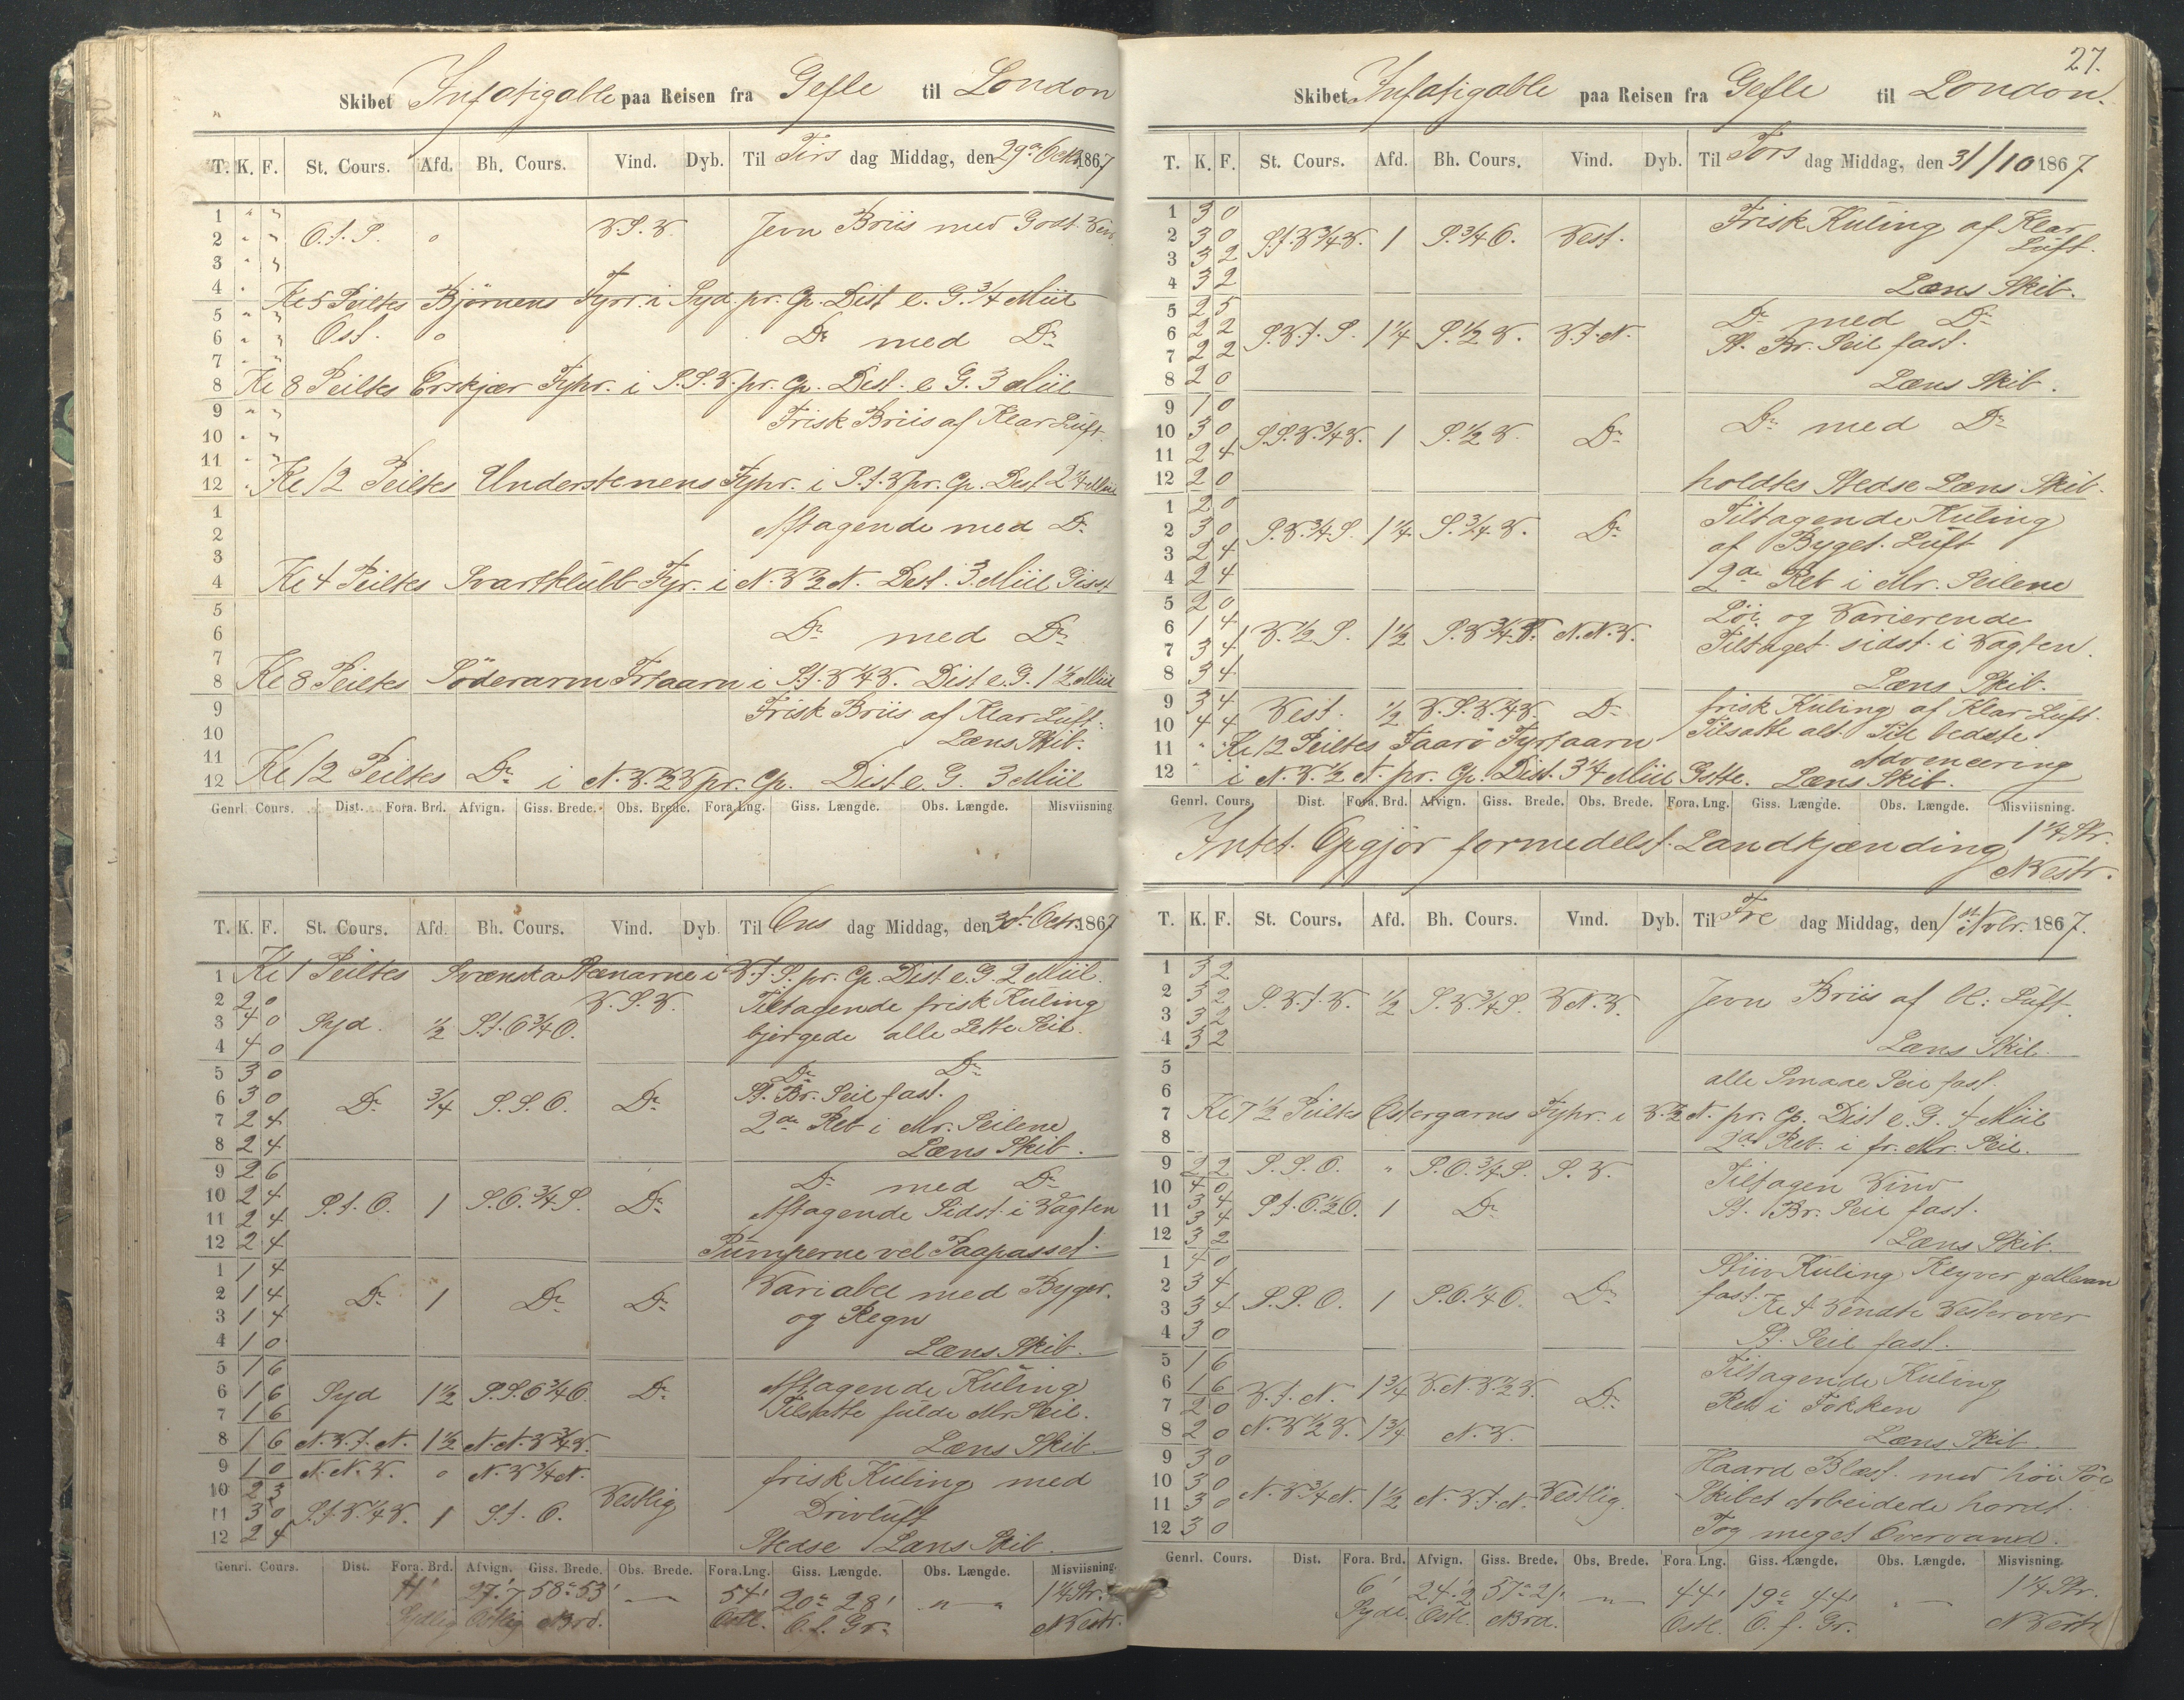 Skibet Infatigable paa Reisen fra Gefle til London
T. K. F. St. Cours. Afd. Bh. Cours. Vind. Dyb. Til Tirs dag Middag, den 29de Octbr 1867
1 " "
2 " " O.t.S. o V.S.V. Jevn Briis med Godt Veir
3 " "
4 " Kl 5 Peiltes Björnens Fyrt. i Syd. pr. Cp. Dist e. G. 3/4 Miil
5 " "
6 " " Ost. o Do med Do
7 " "
8 Kl 8 Peiltes Erskjær Fyhr. i S.S.V. pr. Cp. Dist. e G. 3 Miil
9 " " Frisk Briis af Klar Luft
10 " "
11 " "
12 " Kl 12 Peiltes Understenens Fyhr. i S.t.V pr. Cp. Dist 2 1/4 Miil
1
2 Aftagende med Do
3
4 Kl 4 Peiltes Svartklubb Fyr. i N.V 1/2 N. Dist. 3 Miil Gisst
5
6 Do med Do
7
8 Kl 8 Peiltes Söderarm Frtaarn i S.t.V 1/4 V. Dist e. G. 1 1/2 Miil
9 Frisk Briis af Klar Luft.
10 Læns Skib.
11
12 Kl 12 Peiltes Do i N.V. 1/2 V pr. Cp. Dist e. G. 3 Miil
Genrl. Cours. Dist. Fora. Brd. Afvign. Giss. Brede. Obs. Brede. Fora. Lng. Giss. Længde. Obs. Længde. Misviisning
T. K. F. St. Cours. Afd. Bh. Cours. Vind. Dyb. Til Ons dag Middag, den 30t Octr. 1867
1 Kl 1 Peiltes Svenska Stenarne i V.t.S. pr. Cp. Dist e. G. 2 Miil.
2 2 0 V.S.V. Tiltagende frisk Kuling
3 4 0 Syd. 1/2 S.t.O 3/4 O. bjergede alle Lette Seil.
4 4 0
5 3 0 Do Do
6 3 0 Do 3/4 S.S.O. Do St. Br. Seil fast.
7 2 4 2de Reb i Mr. Seilene
8 2 4 Læns Skib.
9 2 6 Do med Do
10 2 4 S.t.O. 1 S.O. 3/4 S. Do
11 2 4 Aftagende Sidst i Vagten
12 2 4 Pumperne vel Paapasset.
1 1 4 Variabel med Byger.
2 1 4 Do 1 Do Do
3 1 4 og Regn
4 1 0 Læns Skib.
5 1 6 Aftagende Kuling
6 1 6 Syd 1 1/2 S.S.O 3/4 O. Do
7 1 6 Tilsatte fulde Mr Seil.
8 1 6 N.V.t.N. 1 1/2 N.N.V 3/4 V. Læns Skib.
9 1 0 N.N.V. o N.V 3/4 N. frisk Kuling med
10 2 3 Vestlig
11 3 0 S.t.V. 1/4 V. 1 S.t.O. Drivluft
12 2 4 Stedse Læns Skib.
Genrl. Cours. Dist. Fora. Brd. Afvign. Giss. Brede. Obs. Brede. Fora. Lng. Giss. Længde. Obs. Længde. Misviisning.
27'.7 58° 53' — 54' 20° 28' " 1 1/4 Str.
Sydlig Ostlig Nrd. Ostl. O. f. Gr. NVestr.
27.
Skibet Infatigable paa Reisen fra Gefle til London.
T. K. F. St. Cours. Afd. Bh. Cours. Vind. Dyb. Til Tors dag Middag, den 31/10 1867.
1 3 0 Frisk Kuling af Klar
2 3 0 S.t.V 3/4 V. 1 S. 3/4 O. Vest. Luft.
3 3 2
4 3 2 Læns Skib.
5 2 5 Do med Do
6 2 2 S.V.t.S. 1 1/4 S. 1/2 V. V.t.N. St. Br. Seil fast.
7 2 2
8 2 0 Læns Skib.
9 1 0 Do med Do
10 3 0 S.S.V. 3/4 V. 1 S. 1/2 V. Do
11 2 4
12 2 0 holdtes Stedse Læns Skib.
1 2 0 Tiltagende Kuling
2 3 0 S.V. 3/4 S. 1 1/4 S. 3/4 V. Do
3 2 4 af Byget. Luft
4 2 4 2de Reb i Mr. Seilene
5 2 0 Löi og Varierende
6 1 4 V. 1/2 S. 1 1/2 S.V 3/4 V. N.N.V.
7 3 4 Tiltaget sidst i Vagten.
8 3 4 Læns Skib.
9 3 4 Vest. 1/2 V.S.V. 1/4 V. Do frisk Kuling af Klar Luft.
10 4 4 Tilsatte alt Til bedste
11 " Kl 12 Peiltes Faarö Fyrtaarn Advencering
12 " i N.V. 1/2 N. pr. Cp. Dist. 3 1/4 Miil Gstte. Læns Skib.
Genrl. Cours. Dist. Fora. Brd. Afvign. Giss. Brede. Obs. Brede. Fora. Lng. Giss. Længde. Obs. Længde. Misviisning.
Intet Opgjör formedelst Landkjænding 1 1/4 Str.
NVestr.
T. K. F. St. Cours. Afd. Bh. Cours. Vind. Dyb. Til Fre dag Middag, den 1st Novbr. 1867.
1 3 2
2 3 2 S.V.t.V. 1/2 S.V. 3/4 S. V.N.V. Jevn Briis af Kl: Luft.
3 3 2
4 3 2 Læns Skib.
5 alle Smaae Seil fast.
6
7 Kl 7 1/2 Peiltes Östergarns Fyhr. i V. 1/2 N. pr. Cp. Dist e. G. 4 Miil
8 2de Reb. i fr. Mr. Seil.
9 2 2 S.S.O. " S.O. 3/4 S. S.V. Tiltagen Vind
10 4 0
11 3 4 S.t.O. 1/2 O. 1 Do St. Br. Seil fast.
3 4
12 3 2 Læns Skib.
1 4 0 Stiiv Kuling Klyver Mesan
2 3 4 fast.
3 3 4 S.S.O. 1 S.O. 1/4 O. Do Kl 4 Vendte Vesterover
4 3 0 St. Seil fast.
5 1 6 Tiltagende Kuling
6 1 6 V.t.N. 1 3/4 V.N.V 1/2 V. Do
7 2 0 Reb i Fokken
8 2 0 N.V 1/2 V. 1 3/4 N.V. Læns Skib.
9 3 0 Haard Blæst. med höi Söe
10 3 0 N.V. 3/4 N. 1 1/2 N.V.t.N. Vestlig. Skibet Arbeidede hardt.
11 3 0
12 3 0 Tog meget Overvand.
Genrl. Cours. Dist. Fora. Brd. Afvign. Giss. Brede. Obs. Brede. Fora Lng. Giss. Længde. Obs. Længde. Misvisning.
6' 24'.2 57° 21' — 44' 19° 44' " 1 1/4 Str.
Sydl. Ostl. Nrd. Ostl. O. f. Gr. NVestr